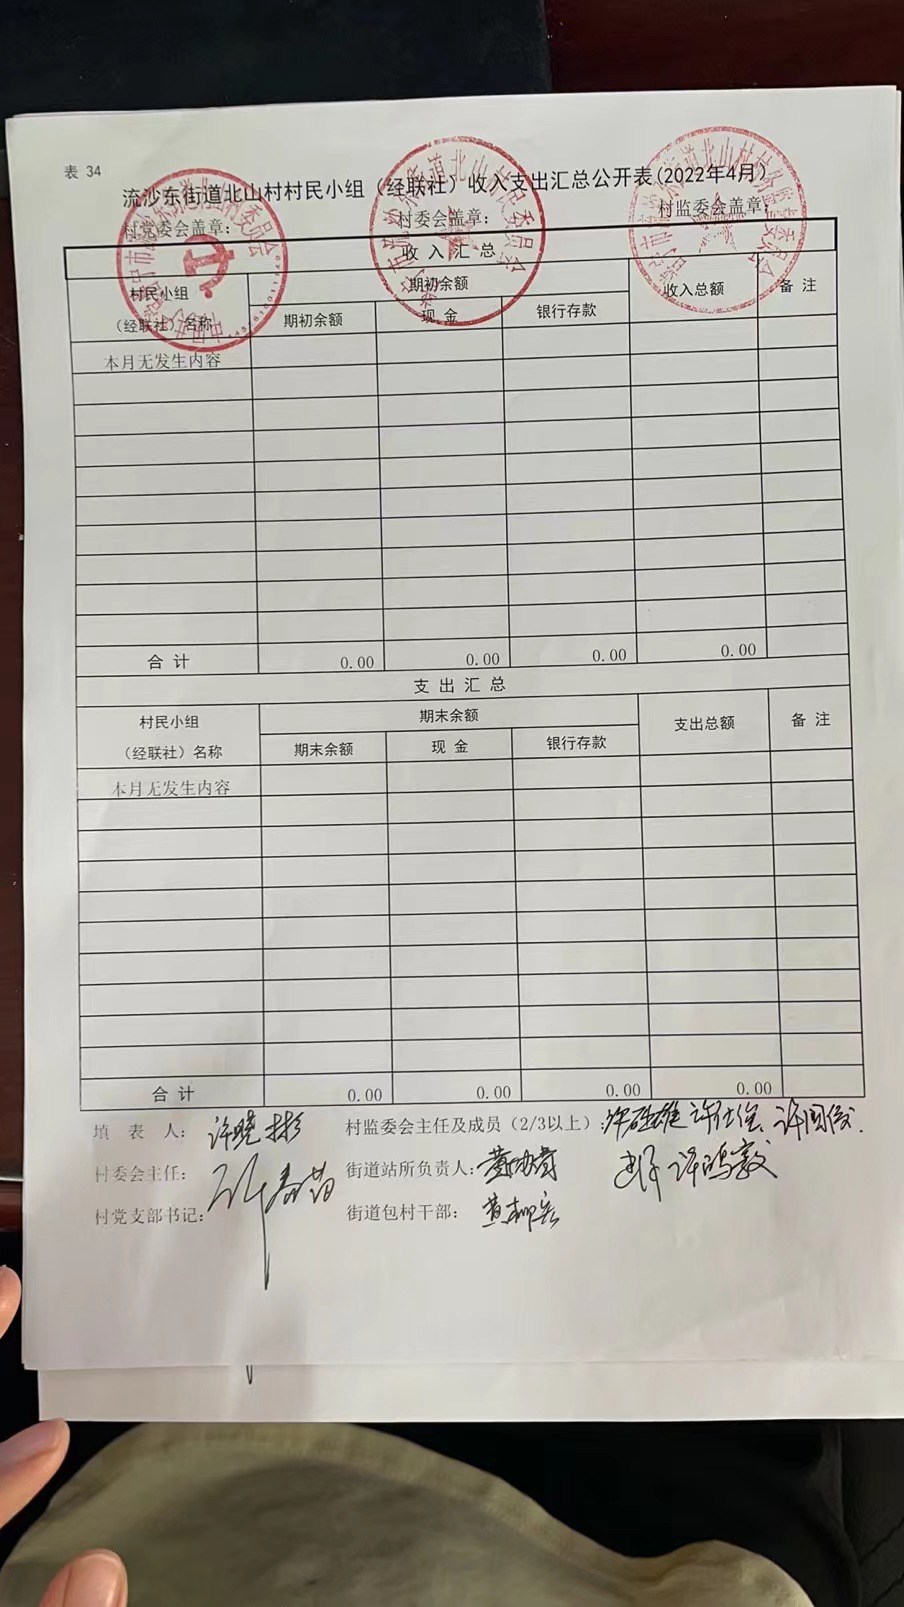 表 34
流沙东街道北山村村民小组（经联社）收入支出汇总公开表(2022年4月)
村党委会盖章: 村委会盖章: 村监委会盖章:
收 入 汇 总
村民小组
（经联社）名称
期初余额
期初余额 现 金 银行存款
收入总额 备 注
本月无发生内容
合 计 0.00 0.00 0.00 0.00
支 出 汇 总
村民小组
（经联社）名称
期末余额
期末余额 现 金 银行存款
支出总额 备 注
本月无发生内容
合 计 0.00 0.00 0.00 0.00
填 表 人: 许晓彬 村监委会主任及成员（2/3以上）:
村委会主任: 街道站所负责人:
许鸿毅
村党支部书记: 街道包村干部: